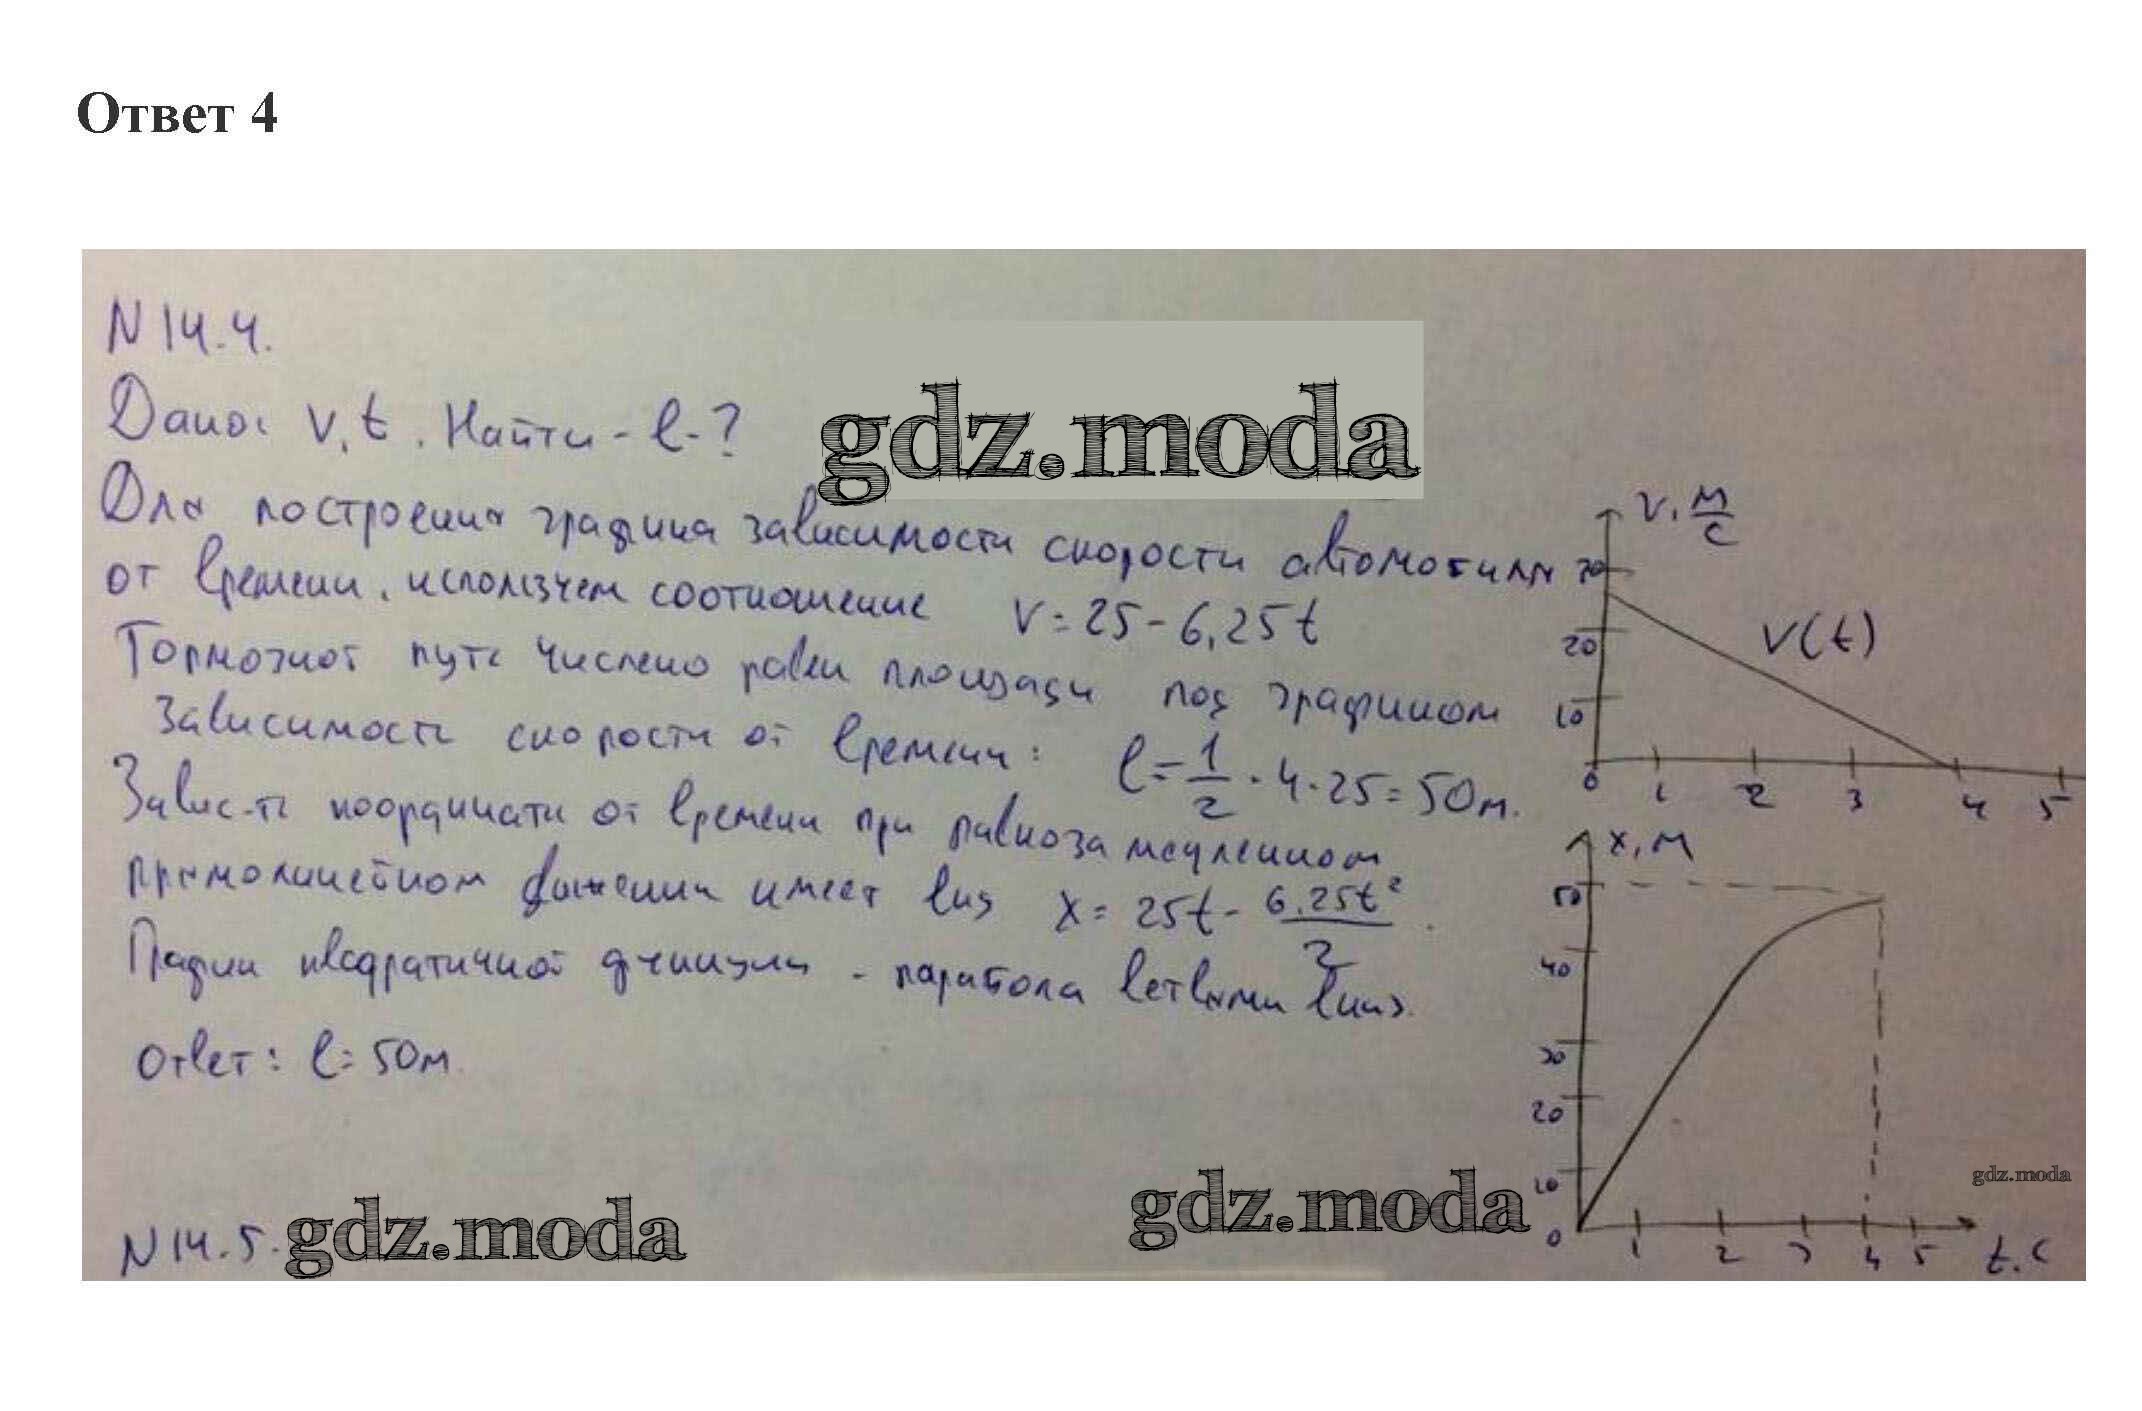 Ответ 4
N 14.4.
gdz.moda
Дано: v, t. Найти - l-?
Для построения графика зависимости скорости автомобиля
от времени, используем соотношение v = 25 - 6,25t
Тормозной путь численно равен площади под графиком
зависимости скорости от времени: l = 1/2 · 4 · 25 = 50м.
Завис-ть координаты от времени при равнозамедленном
прямолинейном движении имеет вид x = 25t - 6,25t²/2.
График квадратичной функции - парабола ветвями вниз.
Ответ: l = 50м.
v, м/с
30
20
10
0 1 2 3 4 5
v(t)
x, м
50
40
30
20
10
0 1 2 3 4 5 t, с
gdz.moda
N 14.5. gdz.moda
gdz.moda